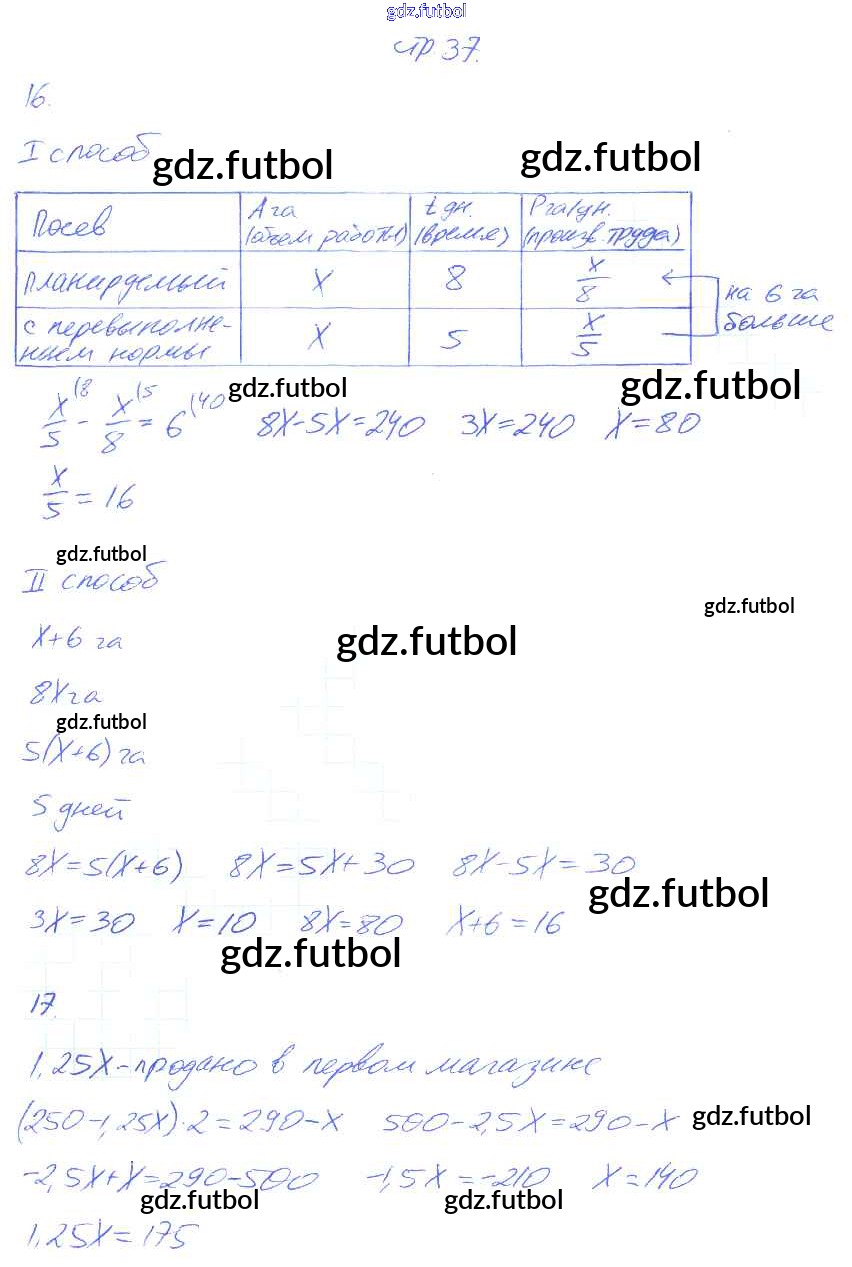 gdz.futbol
стр 37.
16.
I способ
gdz.futbol gdz.futbol
Посев | A га (объем работы) | t дн. (время) | P га/дн. (произв. труда)
планируемый | x | 8 | x/8
с перевыполне-нием нормы | x | 5 | x/5
на 6 га больше
gdz.futbol gdz.futbol
x/5 (8 - x/8 (5 = 6 (40 8x-5x=240 3x=240 x=80
x/5 = 16
gdz.futbol
II способ
gdz.futbol
x+6 га
gdz.futbol
8x га
gdz.futbol
5(x+6) га
5 дней
8x=5(x+6) 8x=5x+30 8x-5x=30
gdz.futbol
3x=30 x=10 8x=80 x+6=16
gdz.futbol
17.
1,25x-продано в первом магазине
(250-1,25x)·2=290-x 500-2,5x=290-x
gdz.futbol
-2,5x+x=290-500 -1,5x=-210 x=140
gdz.futbol gdz.futbol
1,25x=175